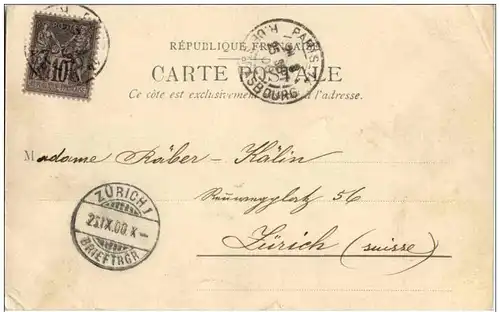 RÉPUBLIQUE FRANÇAISE
CARTE POSTALE
Ce côté est exclusivement à l'adresse.
PARIS
SBOURG
10
Madame Räber-Kälin
Rennwegplatz 56
Zürich (Suisse)
ZÜRICH 1
2 IX.00.X-
BRIEFTRGR